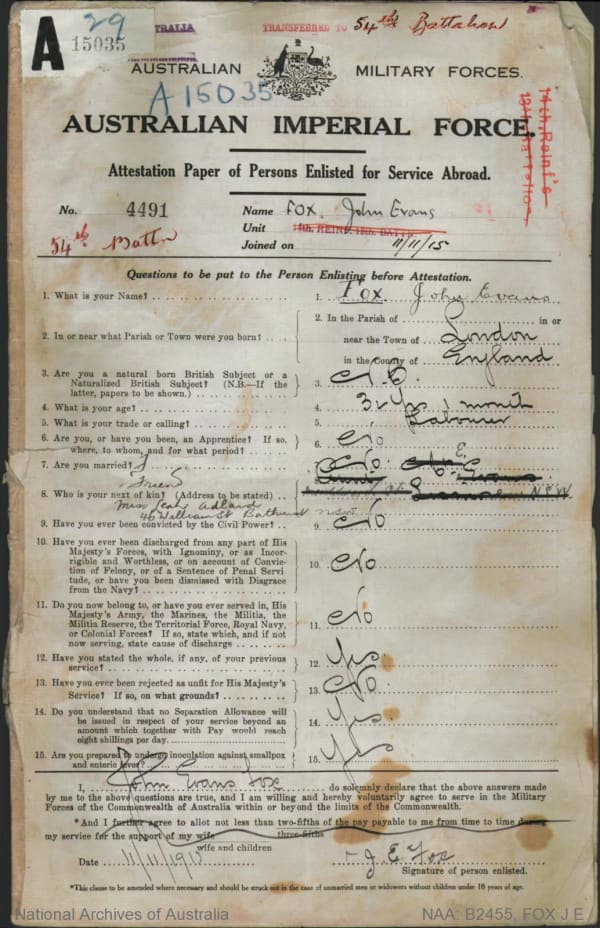 29
A
15035
TRALIA
TRANSFERRED TO 54th Battalion
AUSTRALIAN MILITARY FORCES.
A15035
AUSTRALIAN IMPERIAL FORCE.
14th. Reint's
Attestation Paper of Persons Enlisted for Service Abroad.
No. 4491
Name FOX. John Evans
54th Battn
Unit 14th. REINF. 13th. BATTN
Joined on 11/11/15
Questions to be put to the Person Enlisting before Attestation.
1. What is your Name? 1. Fox. John Evans
2. In or near what Parish or Town were you born? 2. In the Parish of in or
near the Town of London
in the County of England
3. Are you a natural born British Subject or a
Naturalized British Subject? (N.B.—If the
latter, papers to be shown.) 3. N.B.
4. What is your age? 4. Yrs 1 month
5. What is your trade or calling? 5. Labourer
6. Are you, or have you been, an Apprentice? If so,
where, to whom, and for what period? 6. No
7. Are you married? 7. No
Friend
8. Who is your next of kin? (Address to be stated) 8. Evans N.S.W
Miss Leah Adland
46 William St Bathurst N.S.W.
9. Have you ever been convicted by the Civil Power? 9. No
10. Have you ever been discharged from any part of His
Majesty's Forces, with Ignominy, or as Incor-
rigible and Worthless, or on account of Convic-
tion of Felony, or of a Sentence of Penal Servi-
tude, or have you been Dismissed with Disgrace
from the Navy? 10. No
11. Do you now belong to, or have you ever served in, His
Majesty's Army, the Marines, the Militia, the
Militia Reserve, the Territorial Force, Royal Navy,
or Colonial Forces? If so, state which, and if not
now serving, state cause of discharge 11. No
12. Have you stated the whole, if any, of your previous
service? 12. Yes
13. Have you ever been rejected as unfit for His Majesty's
Service? If so, on what grounds? 13. No
14. Do you understand that no Separation Allowance will
be issued in respect of your service beyond an
amount which together with Pay would reach
eight shillings per day 14. Yes
15. Are you prepared to undergo inoculation against smallpox
and enteric fever? 15. Yes
I, John Evans Fox do solemnly declare that the above answers made
by me to the above questions are true, and I am willing and hereby voluntarily agree to serve in the Military
Forces of the Commonwealth of Australia within or beyond the limits of the Commonwealth.
*And I further agree to allot not less than two-fifths of the pay payable to me from time to time during
three-fifths
my service for the support of my wife
wife and children
Date 11/11/1915 J. E. Fox
Signature of person enlisted.
*This clause to be amended where necessary and should be struck out in the case of unmarried men or widowers without children under 16 years of age.
National Archives of Australia NAA: B2455, FOX J E